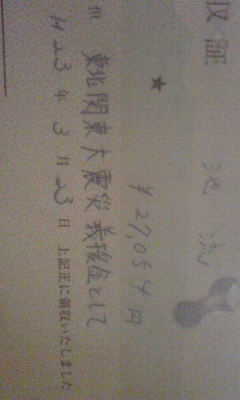 収証
池 流
★
¥27,054円
但 東北関東大震災義援金として
H23年3月23日 上記正に領収いたしました